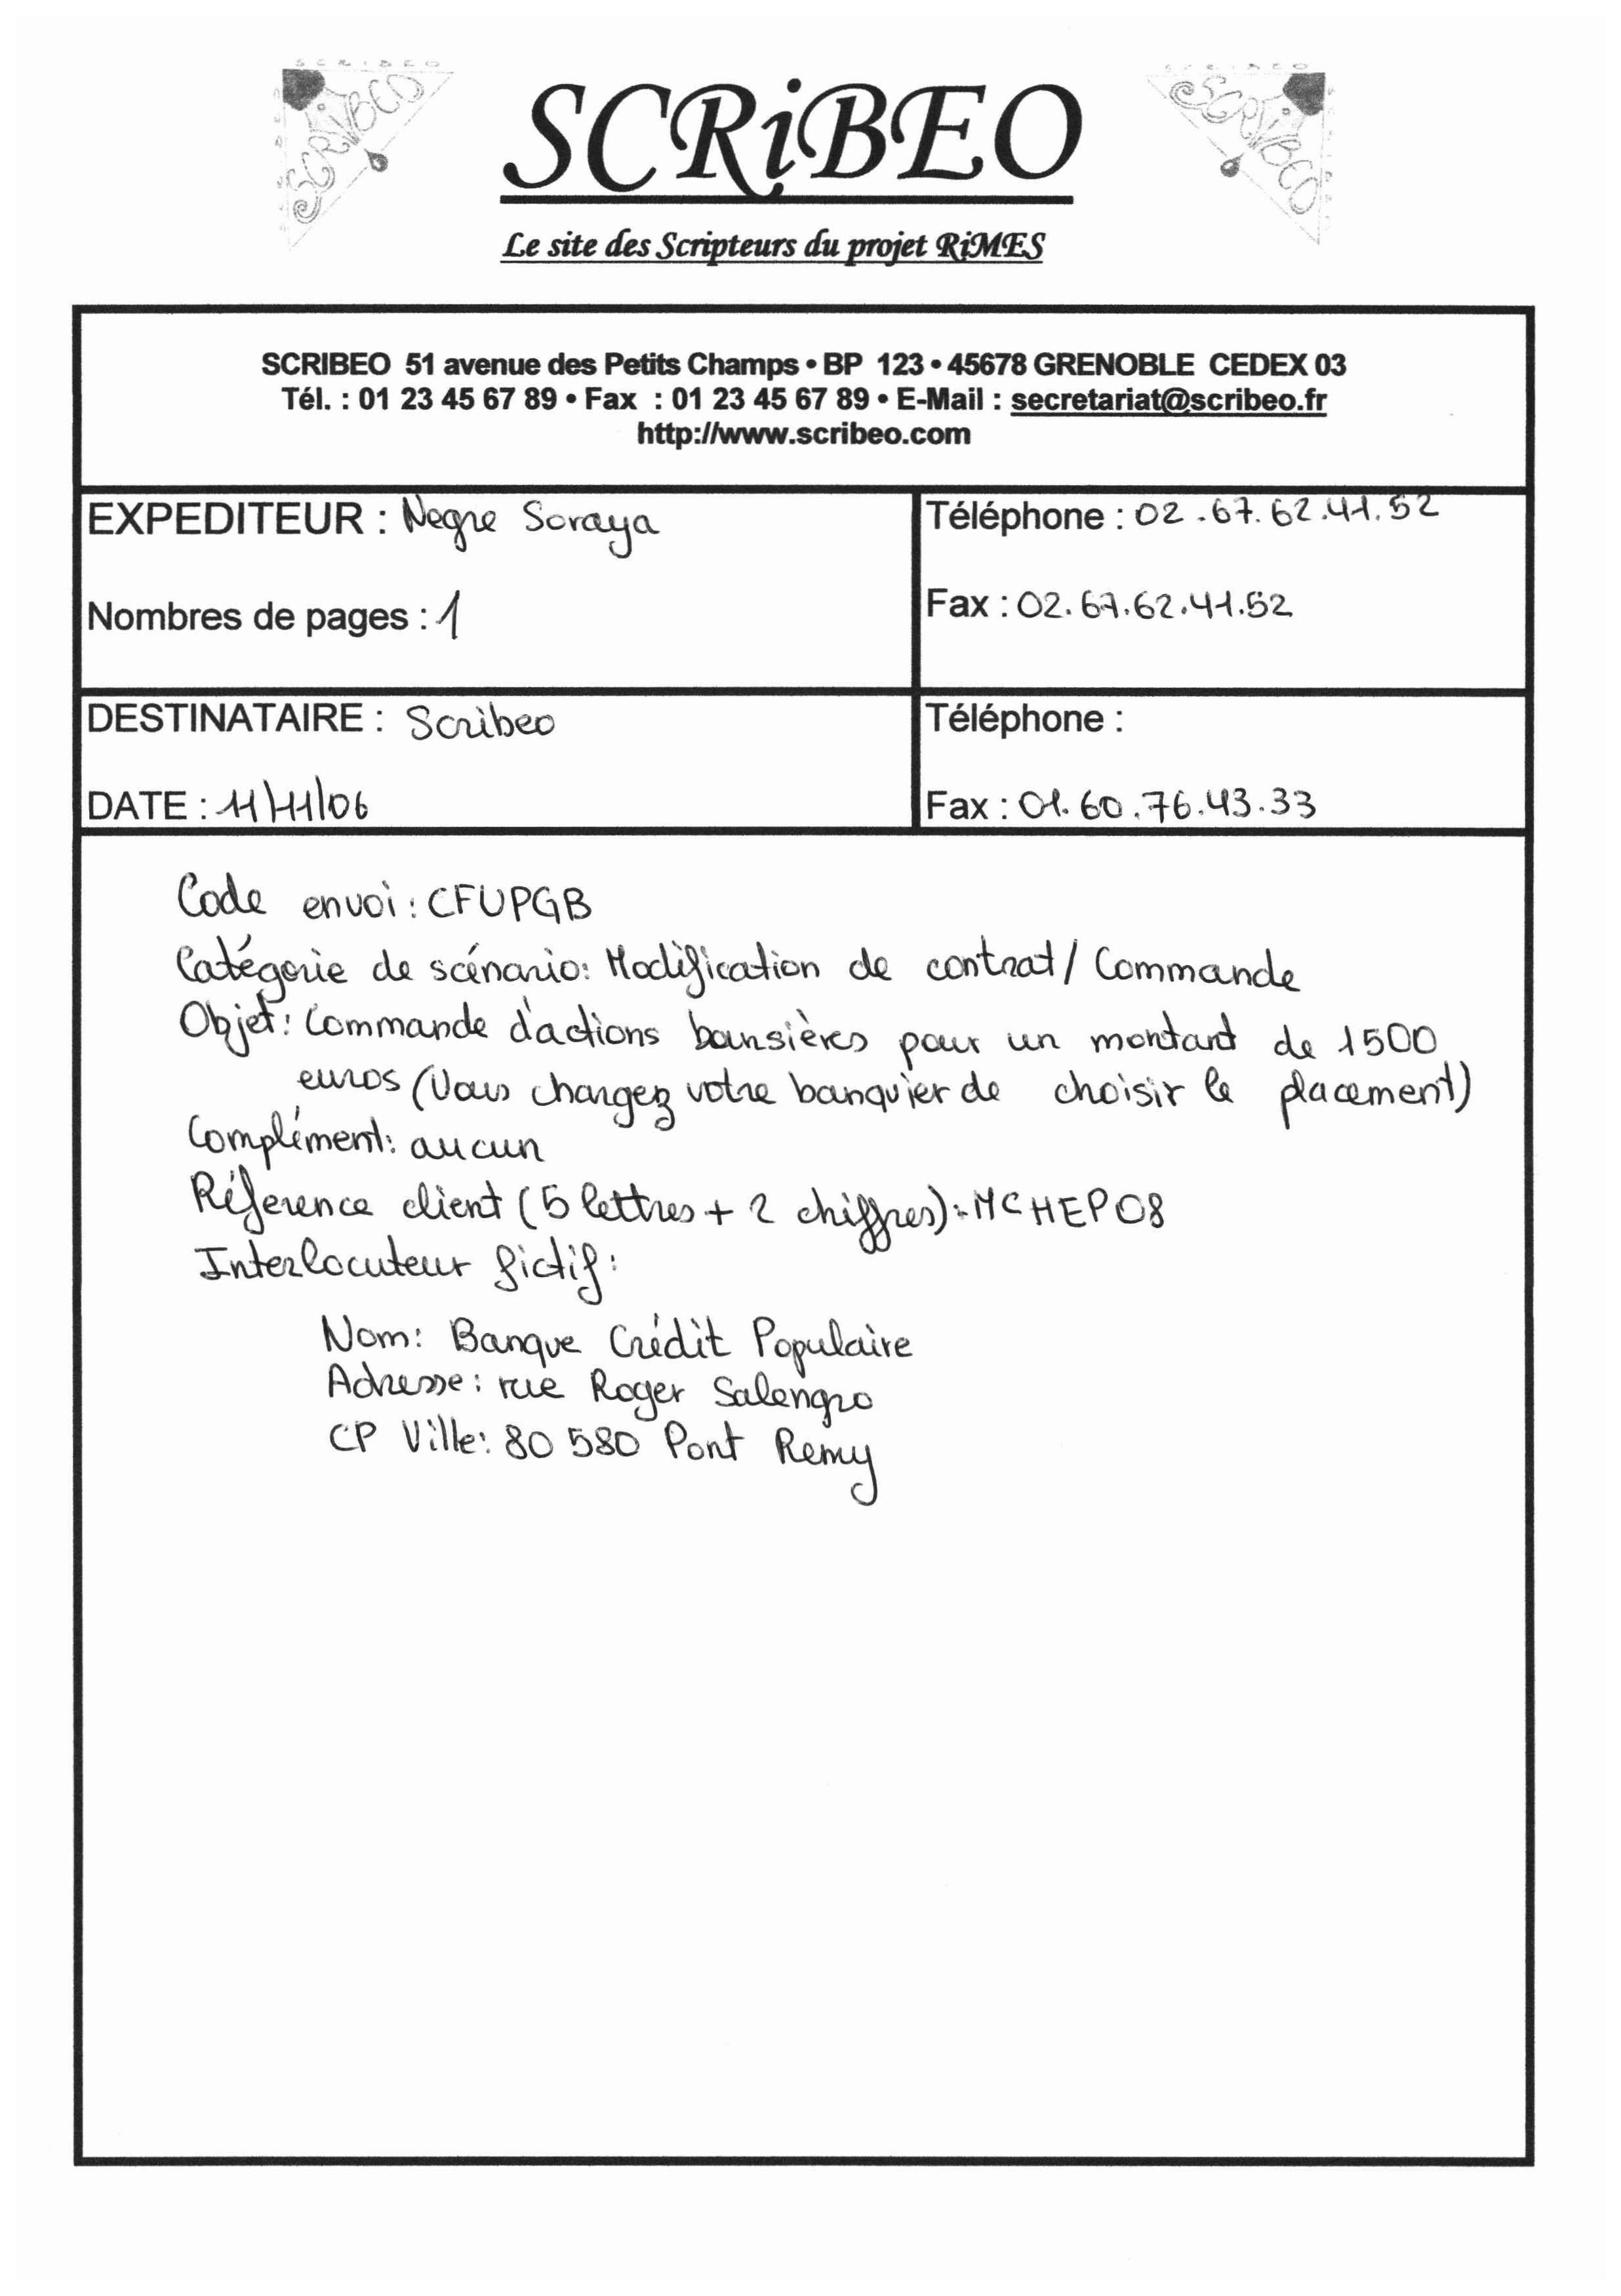 SCRiBEO
Le site des Scripteurs du projet RiMES
SCRIBEO 51 avenue des Petits Champs • BP 123 • 45678 GRENOBLE CEDEX 03
Tél. : 01 23 45 67 89 • Fax : 01 23 45 67 89 • E-Mail : secretariat@scribeo.fr
http://www.scribeo.com
EXPEDITEUR : Negre Soraya
Téléphone : 02.67.62.41.52
Nombres de pages : 1
Fax : 02.67.62.41.52
DESTINATAIRE : Scribeo
Téléphone :
DATE : 11/11/06
Fax : 01.60.76.43.33
Code envoi : CFUPGB
Catégorie de scénario: Modification de contrat / Commande
Objet : Commande d'actions boursières pour un montant de 1500
euros (Vous chargez votre banquier de choisir le placement)
Complément : aucun
Réference client (5 lettres + 2 chiffres) : MCHEP08
Interlocuteur fictif :
Nom : Banque Crédit Populaire
Adresse : rue Roger Salengro
CP Ville : 80 580 Pont Remy